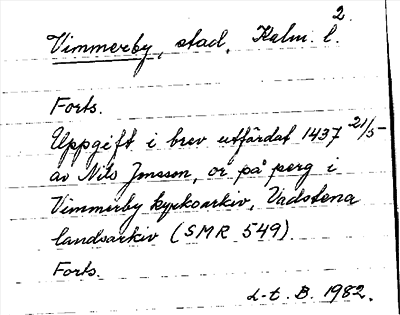 2
Vimmerby, stad, Kalm. l.
Forts.
Uppgift i brev utfärdat 1437 21/5
av Nils Jonsson, or på perg i
Vimmerby kyrkoarkiv, Vadstena
landsarkiv (SMR 549)
Forts.
L-t. B. 1982.